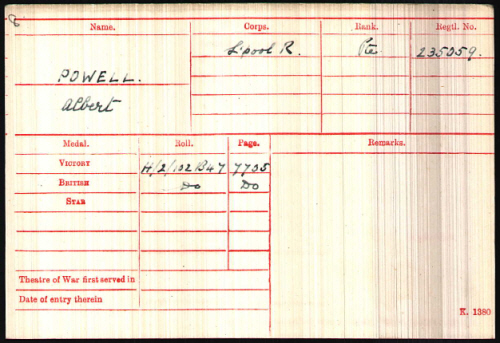 8
Name. Corps. Rank. Regtl. No.
L'pool R. Pte 235059.
POWELL.
Albert
Medal. Roll. Page. Remarks.
VICTORY H/2/102B47 7705
BRITISH Do Do
STAR
Theatre of War first served in
Date of entry therein
K. 1380